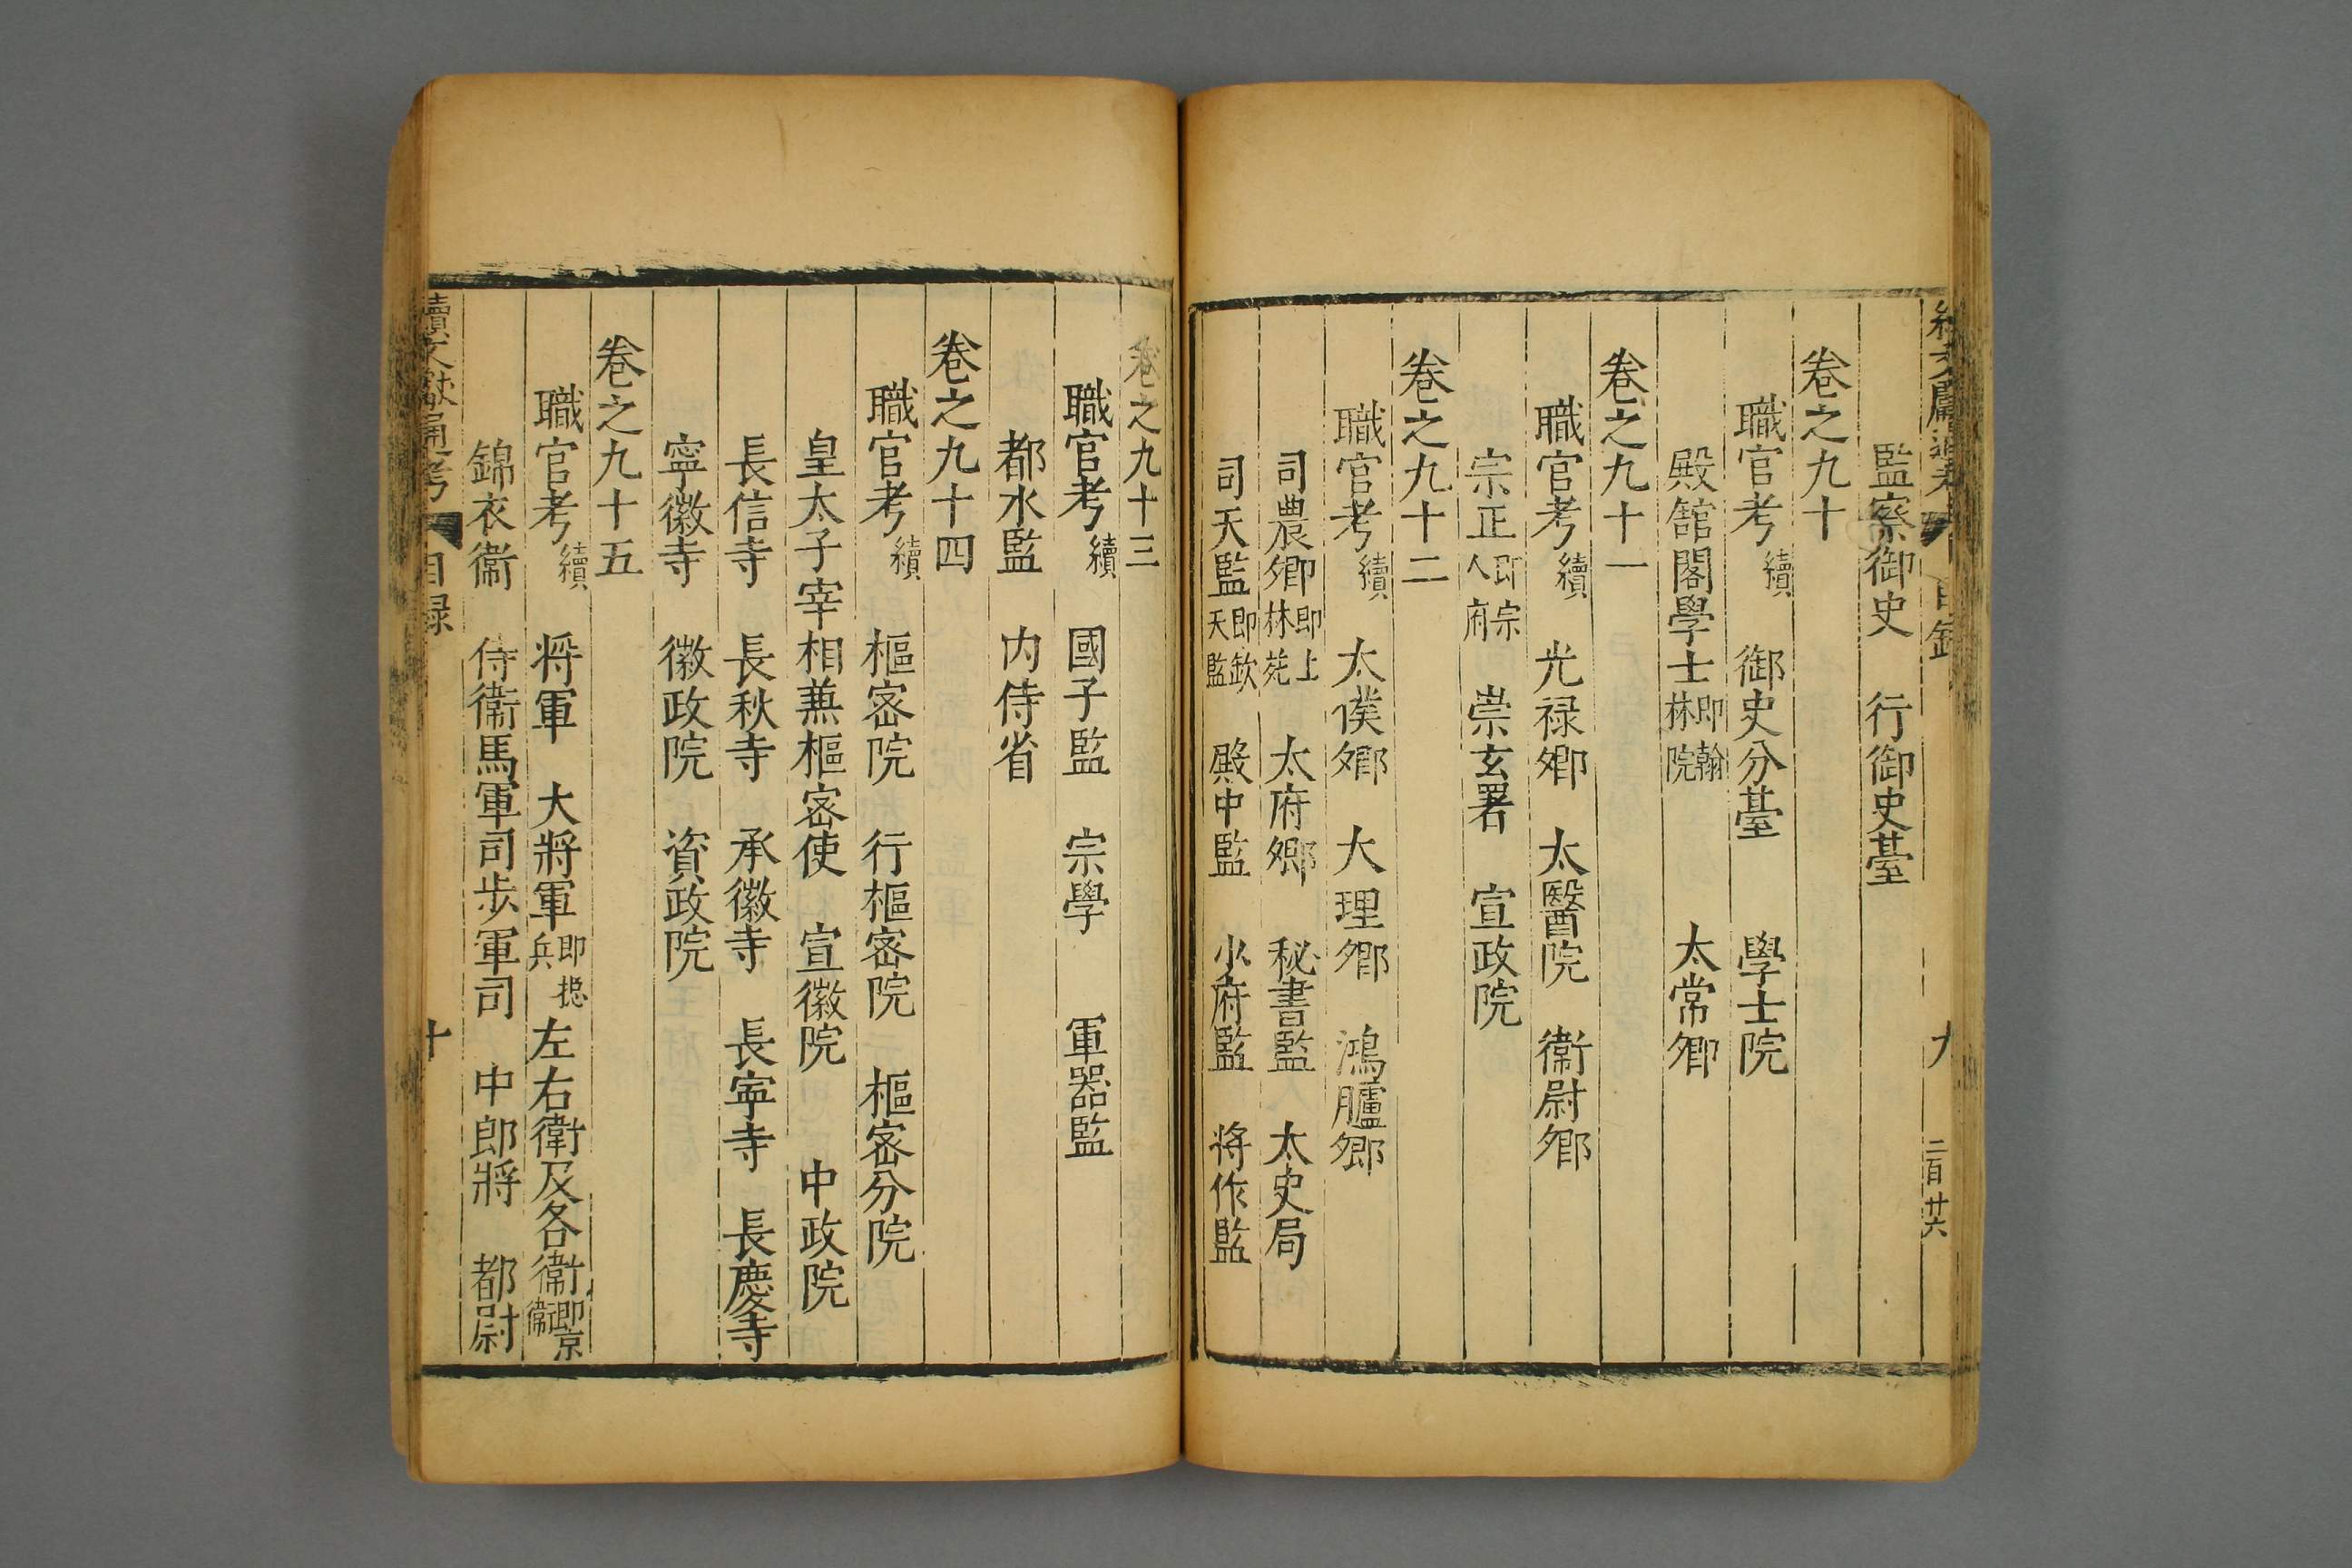 續文獻通考 目錄 九 二百廿六
監察御史 行御史臺
卷之九十
職官考續 御史分臺 學士院
殿館閣學士即翰林院 太常卿
卷之九十一
職官考續 光祿卿 太醫院 衛尉卿
宗正即宗人府 崇玄署 宣政院
卷之九十二
職官考續 太僕卿 大理卿 鴻臚卿
司農卿即上林苑 太府卿 秘書監 太史局
司天監即欽天監 殿中監 少府監 將作監
卷之九十三
職官考續 國子監 宗學 軍器監
都水監 內侍省
卷之九十四
職官考續 樞密院 行樞密院 樞密分院
皇太子宰相兼樞密使 宣徽院 中政院
長信寺 長秋寺 承徽寺 長寧寺 長慶寺
寧徽寺 徽政院 資政院
卷之九十五
職官考續 將軍 大將軍即捴兵 左右衛及各衛即京衛
錦衣衛 侍衛馬軍司步軍司 中郎將 都尉
續文獻通考 目錄 十